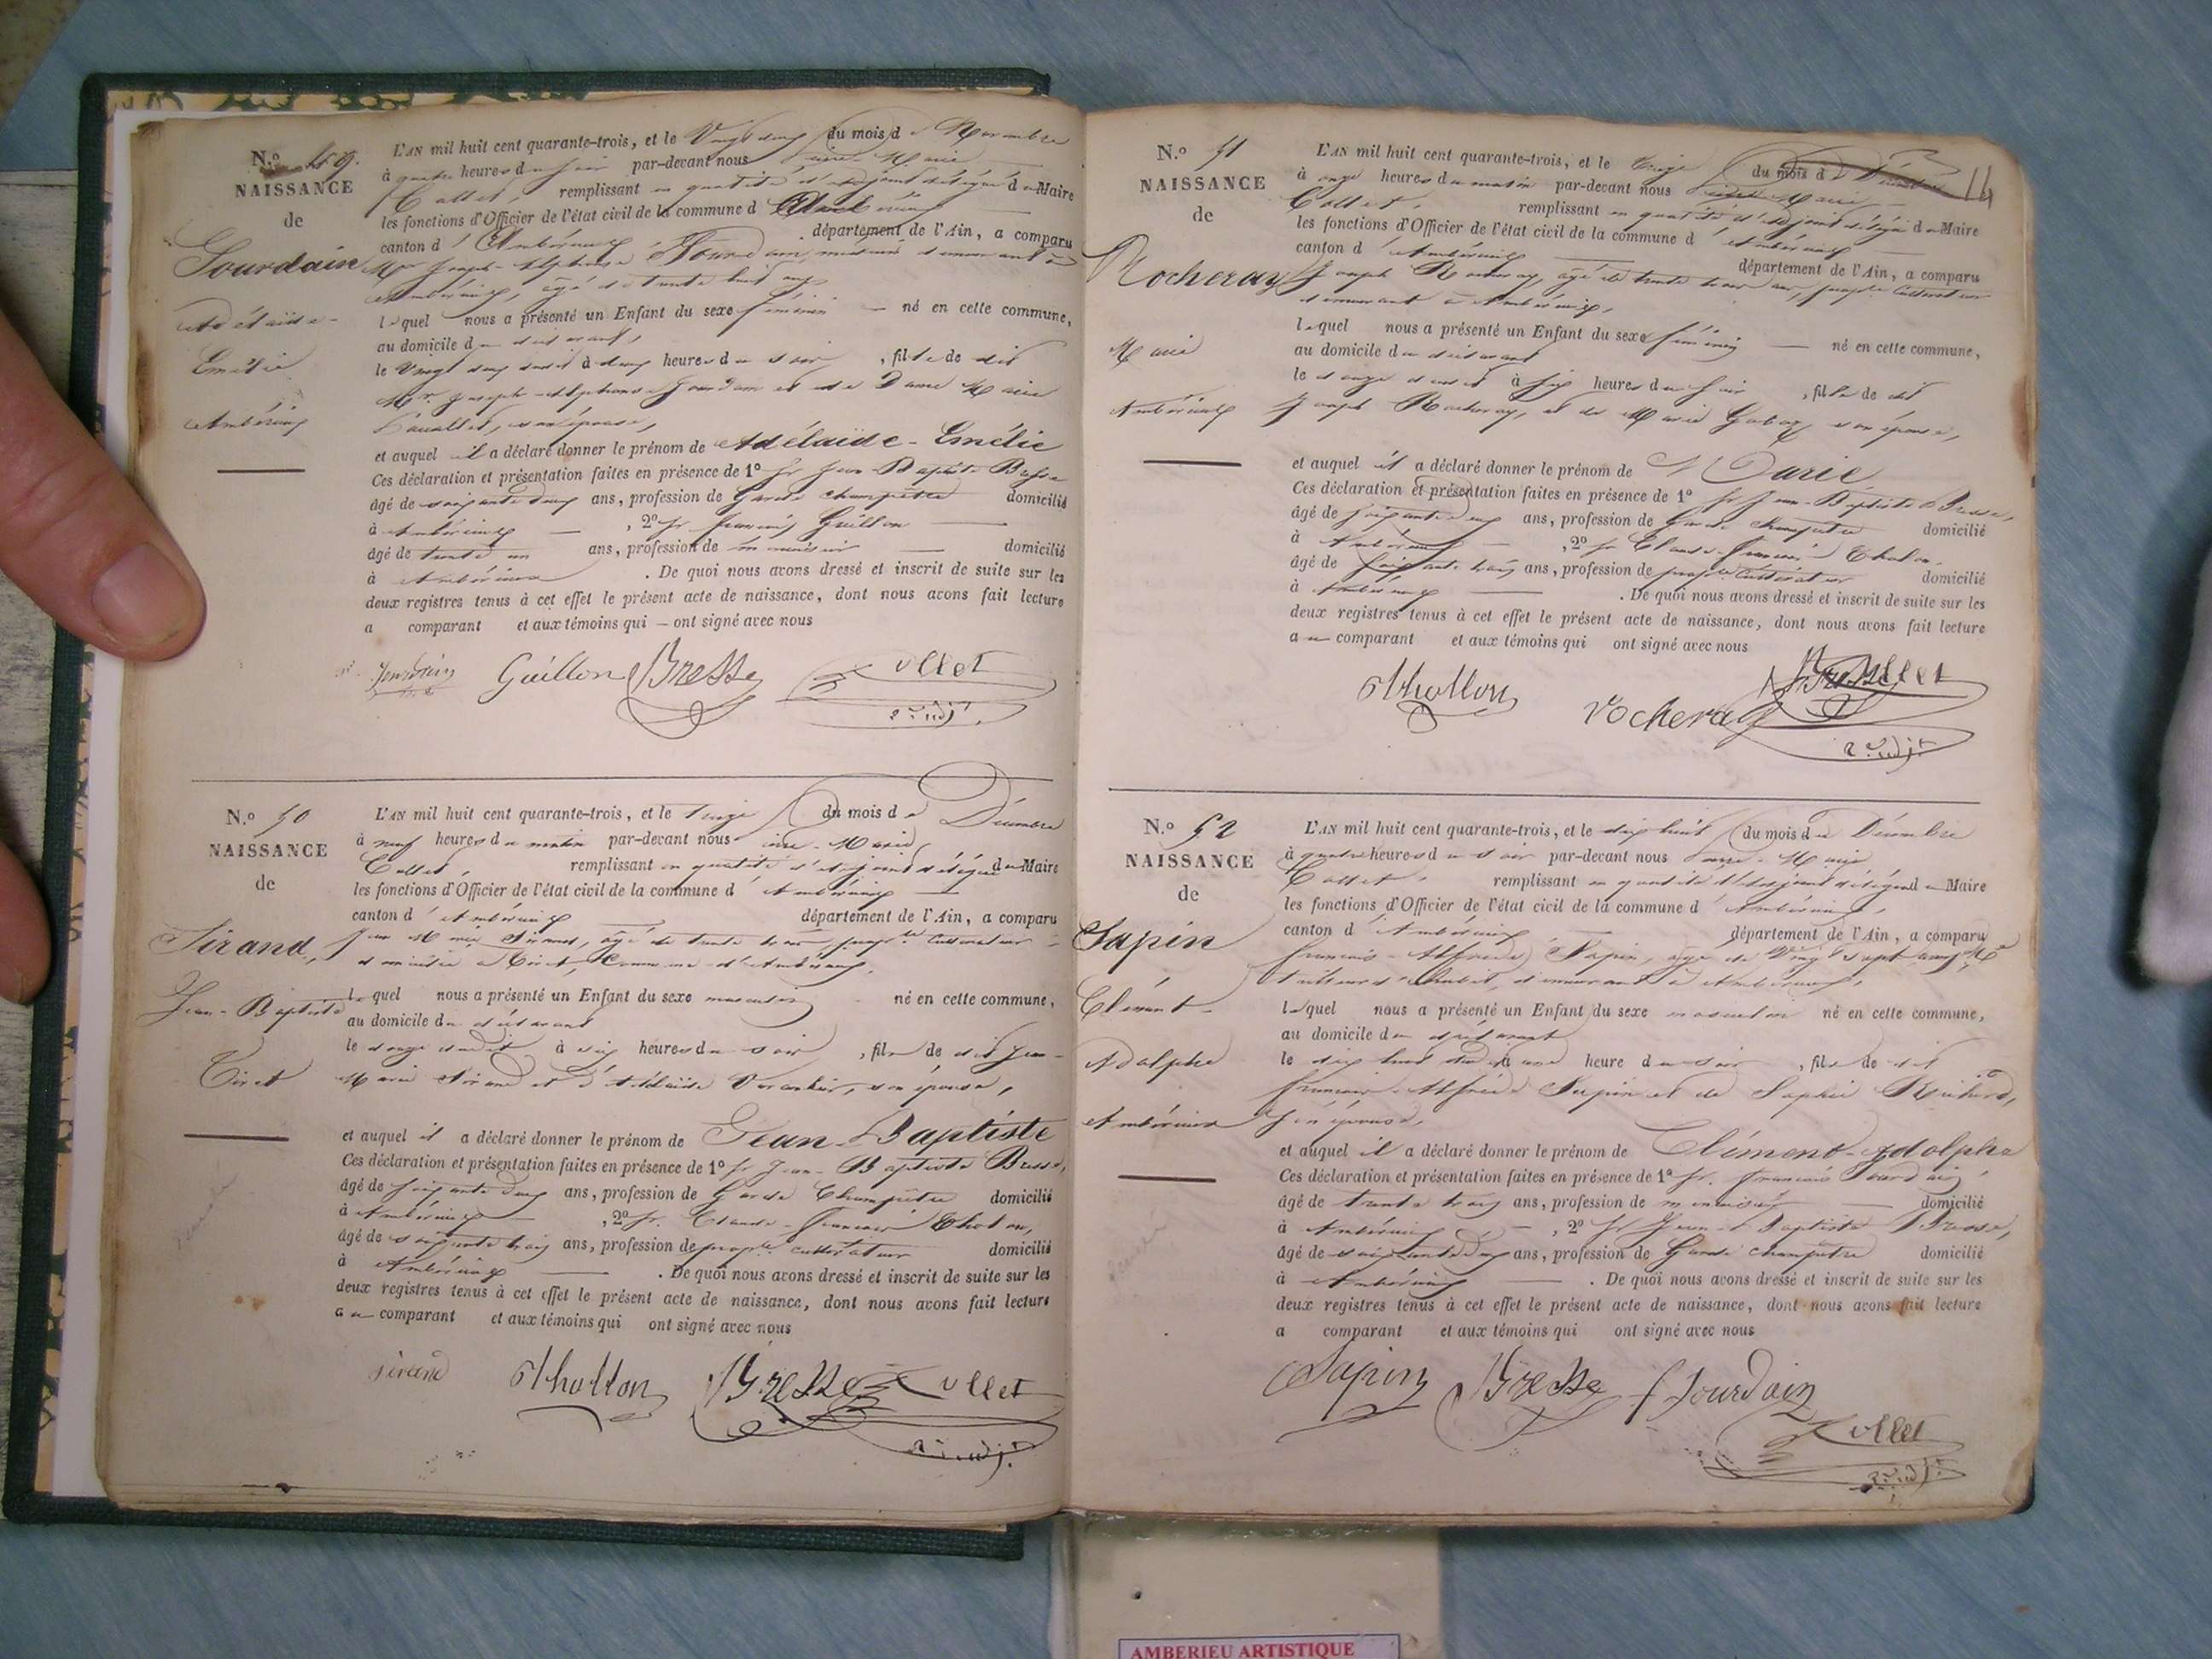 N.º 49.
NAISSANCE
de
Jourdain
Adélaïde-
Emélie
Ambérieux
L'AN mil huit cent quarante-trois, et le Vingt deux du mois de Novembre
à quatre heures du soir par-devant nous Marie
Collet, remplissant en qualité d'adjoint délégué du Maire
les fonctions d'Officier de l'état civil de la commune d'Ambérieux
canton d'Ambérieux département de l'Ain, a comparu
Mr Joseph-Alphonse Jourdain, demeurant à
Ambérieux, âgé de trente huit ans,
lequel nous a présenté un Enfant du sexe féminin né en cette commune,
au domicile du déclarant,
le Vingt deux dudit à deux heures du soir, fille de dit
Mr. Joseph-Alphonse Jourdain et de Dame Marie
son épouse,
et auquel il a déclaré donner le prénom de Adélaïde-Emélie
Ces déclaration et présentation faites en présence de 1º Sr Jean-Baptiste Bresse
âgé de soixante deux ans, profession de Garde champêtre domicilié
à Ambérieux, 2º Sr François Guillon
âgé de trente un ans, profession de menuisier domicilié
à Ambérieux. De quoi nous avons dressé et inscrit de suite sur les
deux registres tenus à cet effet le présent acte de naissance, dont nous avons fait lecture
a comparant et aux témoins qui ont signé avec nous
Jourdain Guillon Bresse Collet
N.º 50
NAISSANCE
de
Sirand,
Jean-Baptiste
Tiret
L'AN mil huit cent quarante-trois, et le treize du mois de Décembre
à neuf heures du matin par-devant nous Marie
Collet, remplissant en qualité d'adjoint délégué du Maire
les fonctions d'Officier de l'état civil de la commune d'Ambérieux
canton d'Ambérieux département de l'Ain, a comparu
Jean Marie Sirand, âgé de trente trois, propre cultivateur
domicilié à Tiret, Commune d'Ambérieux,
lequel nous a présenté un Enfant du sexe masculin né en cette commune,
au domicile du déclarant
le douze dudit à six heures du soir, fils de dit Jean-
Marie Sirand et d'Adélaïde son épouse,
et auquel il a déclaré donner le prénom de Jean-Baptiste
Ces déclaration et présentation faites en présence de 1º Sr Jean-Baptiste Bresse,
âgé de soixante deux ans, profession de Garde Champêtre domicilié
à Ambérieux, 2º Sr. Claude-François Tholon,
âgé de soixante trois ans, profession de propre cultivateur domicilié
à Ambérieux. De quoi nous avons dressé et inscrit de suite sur les
deux registres tenus à cet effet le présent acte de naissance, dont nous avons fait lecture
au comparant et aux témoins qui ont signé avec nous
Sirand Thollon Bresse Collet
14
N.º 51
NAISSANCE
de
Rocheray
Marie
Ambérieux
L'AN mil huit cent quarante-trois, et le treize du mois de Décembre
à onze heures du matin par-devant nous Marie
Collet, remplissant en qualité d'adjoint délégué du Maire
les fonctions d'Officier de l'état civil de la commune d'Ambérieux
canton d'Ambérieux département de l'Ain, a comparu
Joseph Rocheray, âgé de trente trois ans, propre Cultivateur
demeurant à Ambérieux,
lequel nous a présenté un Enfant du sexe féminin né en cette commune,
au domicile du déclarant
le douze dudit à six heures du soir, fille de dit
Joseph Rocheray, et de Marie son épouse,
et auquel il a déclaré donner le prénom de Marie
Ces déclaration et présentation faites en présence de 1º Sr Jean-Baptiste Bresse,
âgé de soixante deux ans, profession de Garde champêtre domicilié
à Ambérieux, 2º Sr Claude-François Tholon,
âgé de soixante trois ans, profession de propre cultivateur domicilié
à Ambérieux. De quoi nous avons dressé et inscrit de suite sur les
deux registres tenus à cet effet le présent acte de naissance, dont nous avons fait lecture
au comparant et aux témoins qui ont signé avec nous
Thollon Rocheray Bresse Collet
N.º 52
NAISSANCE
de
Sapin
Clément-
Adolphe
Ambérieux
L'AN mil huit cent quarante-trois, et le dix huit du mois de Décembre
à quatre heures du soir par-devant nous Marie
Collet, remplissant en qualité d'adjoint délégué du Maire
les fonctions d'Officier de l'état civil de la commune d'Ambérieux,
canton d'Ambérieux département de l'Ain, a comparu
François-Alfred Sapin, âgé de Vingt sept ans, Md
tailleur d'habits, demeurant à Ambérieux,
lequel nous a présenté un Enfant du sexe masculin né en cette commune,
au domicile du déclarant
le dix huit dudit à une heure du soir, fils de dit
François-Alfred Sapin et de Sophie Richard,
son épouse,
et auquel il a déclaré donner le prénom de Clément-Adolphe
Ces déclaration et présentation faites en présence de 1º Sr. François Jourdain
âgé de trente trois ans, profession de menuisier domicilié
à Ambérieux, 2º Sr Jean-Baptiste Bresse,
âgé de soixante deux ans, profession de Garde champêtre domicilié
à Ambérieux. De quoi nous avons dressé et inscrit de suite sur les
deux registres tenus à cet effet le présent acte de naissance, dont nous avons fait lecture
a comparant et aux témoins qui ont signé avec nous
Sapin Bresse f Jourdain
Collet
AMBERIEU ARTISTIQUE